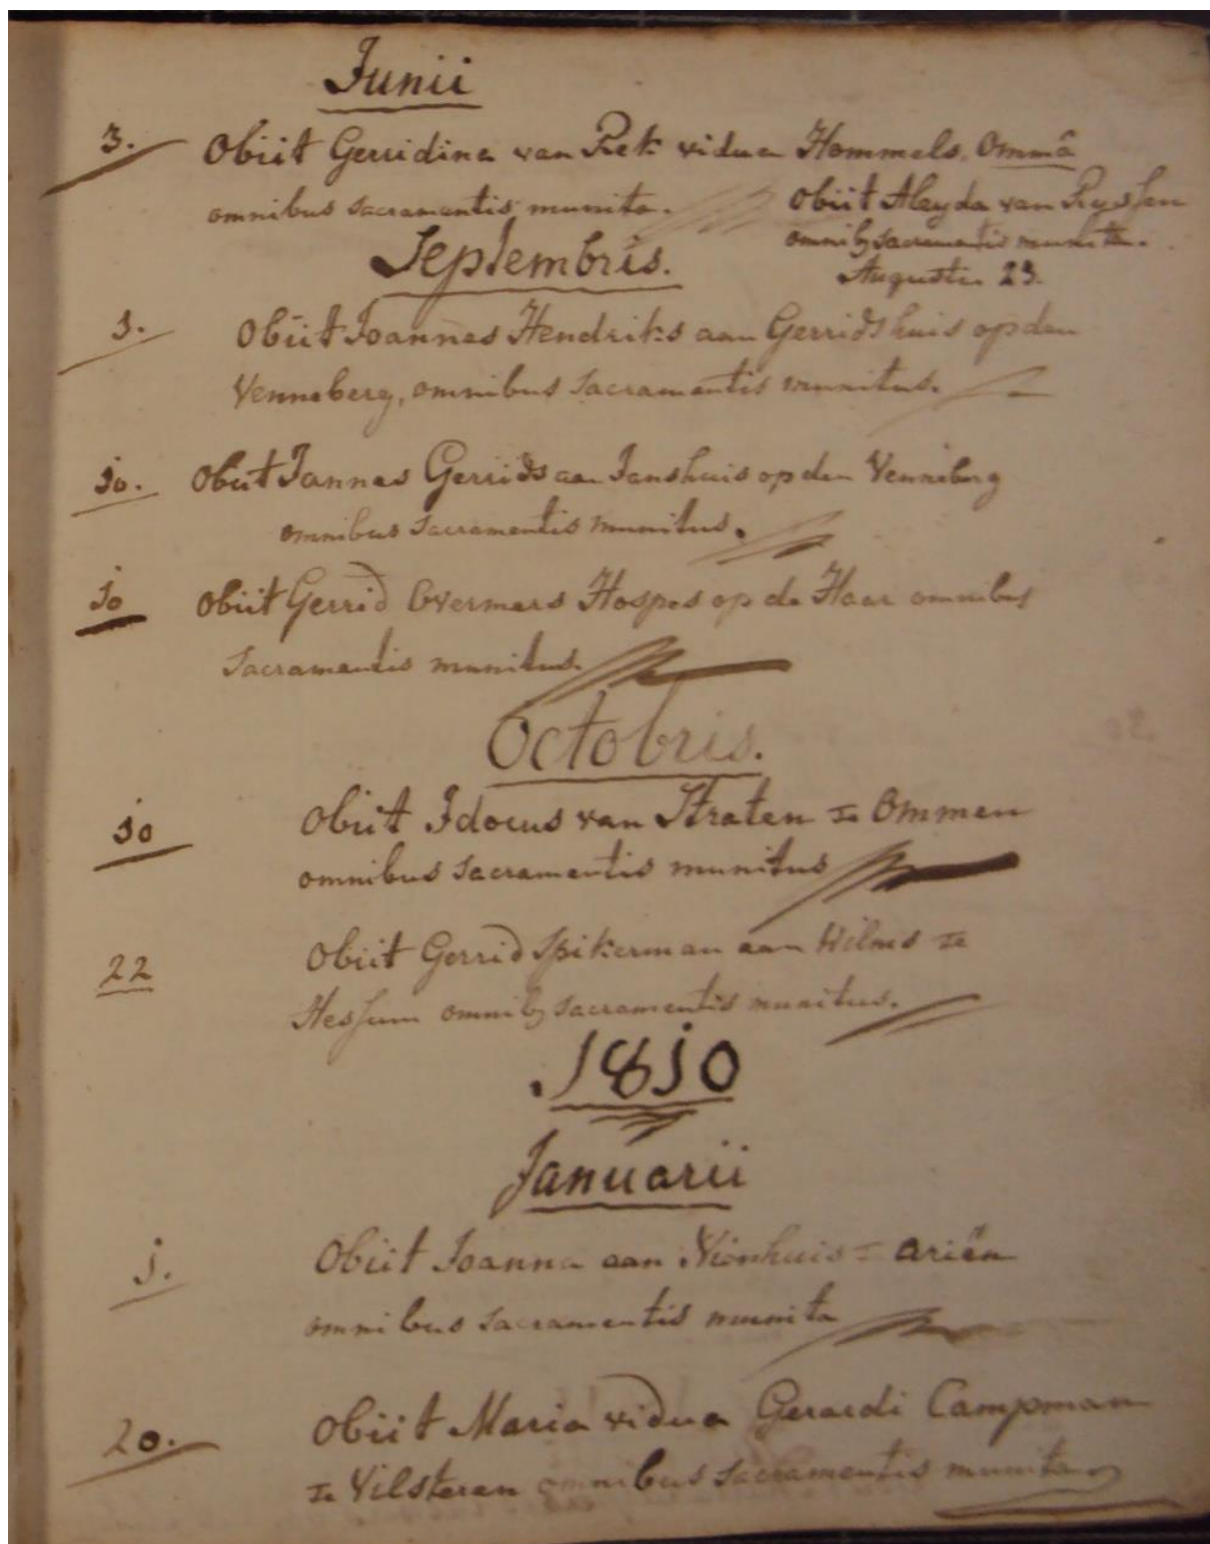 Junii
3. Obiit Gerridina van Rek vidua Hommels. Ommâ
omnibus sacramentis munita.
Obiit Aleyda van Ryssen
omnib9 sacramentis munita.
Augusti 23.
Septembris.
j. Obiit Joannes Hendriks aan Gerridshuis op den
Venneberg, omnibus sacramentis munitus.
jo. Obiit Jannes Gerrids aan Janshuis op den Venneberg
omnibus sacramentis munitus.
jo Obiit Gerrid Overmars Hospes op de Haar omnibus
sacramentis munitus.
Octobris.
jo Obiit Jdocus van Straten in Ommen
omnibus sacramentis munitus
22 Obiit Gerrid Spikerman aan Wilms in
Hessum omnib9 sacramentis munitus.
18j0
Januarii
j. Obiit Joanna aan Nienhuis in ariën
omnibus sacramentis munita
20. Obiit Maria vidua Gerardi Campman
in Vilsteren omnibus sacramentis munita